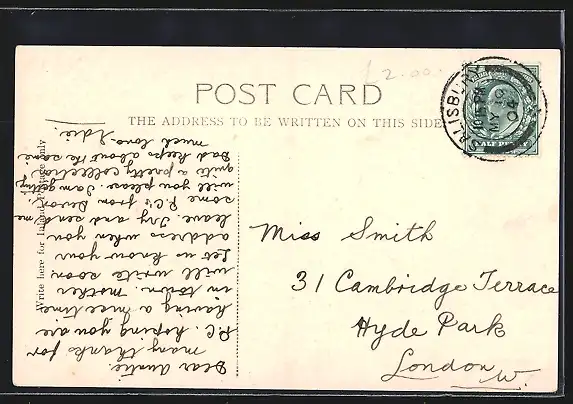 £2.00
POST CARD
THE ADDRESS TO BE WRITTEN ON THIS SIDE
SALISBURY
10.15 PM
MY 10
04
HALF PENNY
Write here for Inland Postage only
Miss Smith
31 Cambridge Terrace
Hyde Park
London
W.
Dear Auntie.
many thanks for
P.C. hoping you are
having a nice time
in town. mother
will write soon
Let us know your
address when you
leave. Try and send me
some P.C's from Devon
will you please. I am getting
quite a pretty collection
Dad keeps about the same
much love Edie.